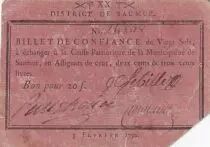 XX
DISTRICT DE SAUMUR.
BILLET DE CONFIANCE de Vingt Sols,
à échanger à la Caisse Patriotique de la Municipalité de
Saumur, en Assignats de cent, deux cents & trois cents
livres.
Bon pour 20 ſ.
FÉVRIER 1792.